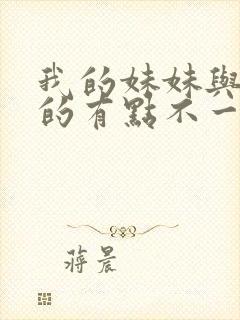 我的妹妹與
的有點不一
蔣晨